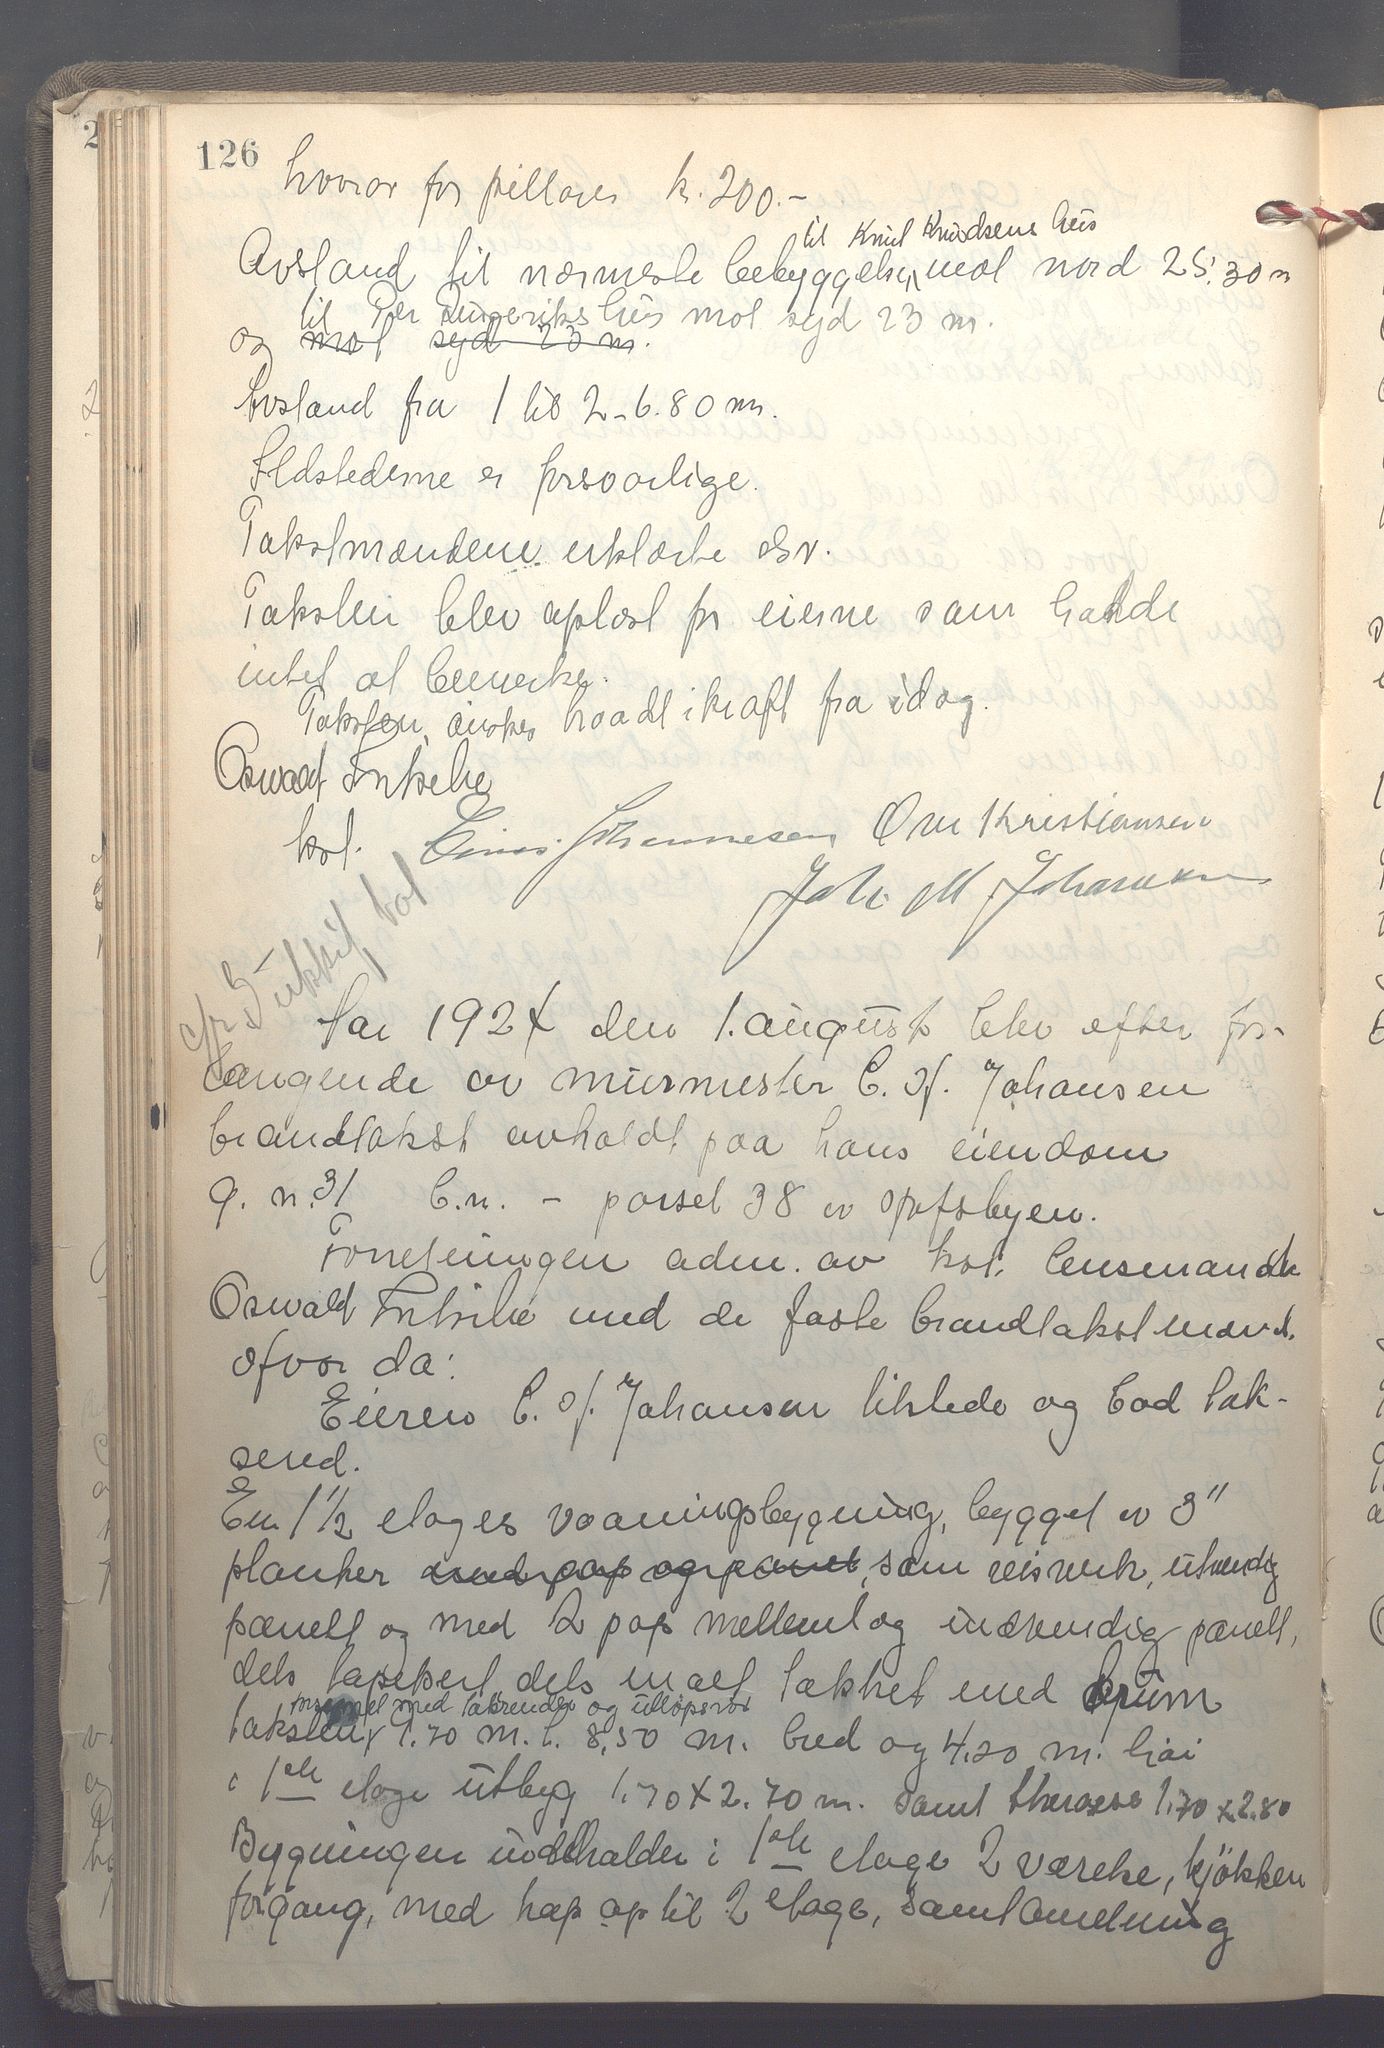 126
hvorav for pillarer kr. 200.-
til Knut Knudsens hus
Avstand til nærmeste bebyggelse, mot nord 25.30 m
til Per hus mot syd 23 m.
og mot syd 23 m.
Avstand fra 1 til 2 - 6.80 m.
Ildstederne er forsvarlige.
Takstmændene erklærte osv.
Taksten blev oplæst for eierne som hadde
intet at bemerke.
Taksten ønskes traadt i kraft fra idag.
Oswald
kst. Johannesen Ove Kristiansen
Joh. M. Johansen
kst
Aar 1924 den 1. august blev efter for-
langende av murmester C. H. Johansen
brandtakst avholdt paa hans eiendom
g. n. 31 b.n. - parsel 38 av
Forretningen adm. av kst. lensmand
Oswald med de faste brandtakstmænd.
Hvor da:
Eieren C. H. Johansen tilstede og bad tak-
sered.
En 1 1/2 etages vaaningsbygning, bygget av 3"
planker med pap og panel, som reisverk, utvendig
panelt og med 2 pap mellemlag indvendig panelt,
dels tapetsert dels malt takket med
med takrender og utløpsrør
taksten, 9.70 m. l. 8,50 m. bred og 4.20 m. høi
i 1ste etage utbyg 1.70 x 2.70 m. samt therasse 1.70 x 2.80
Bygningen indeholder i 1ste etage 2 værelse, kjøkken
forgang, med trap op til 2 etage, samt anretning